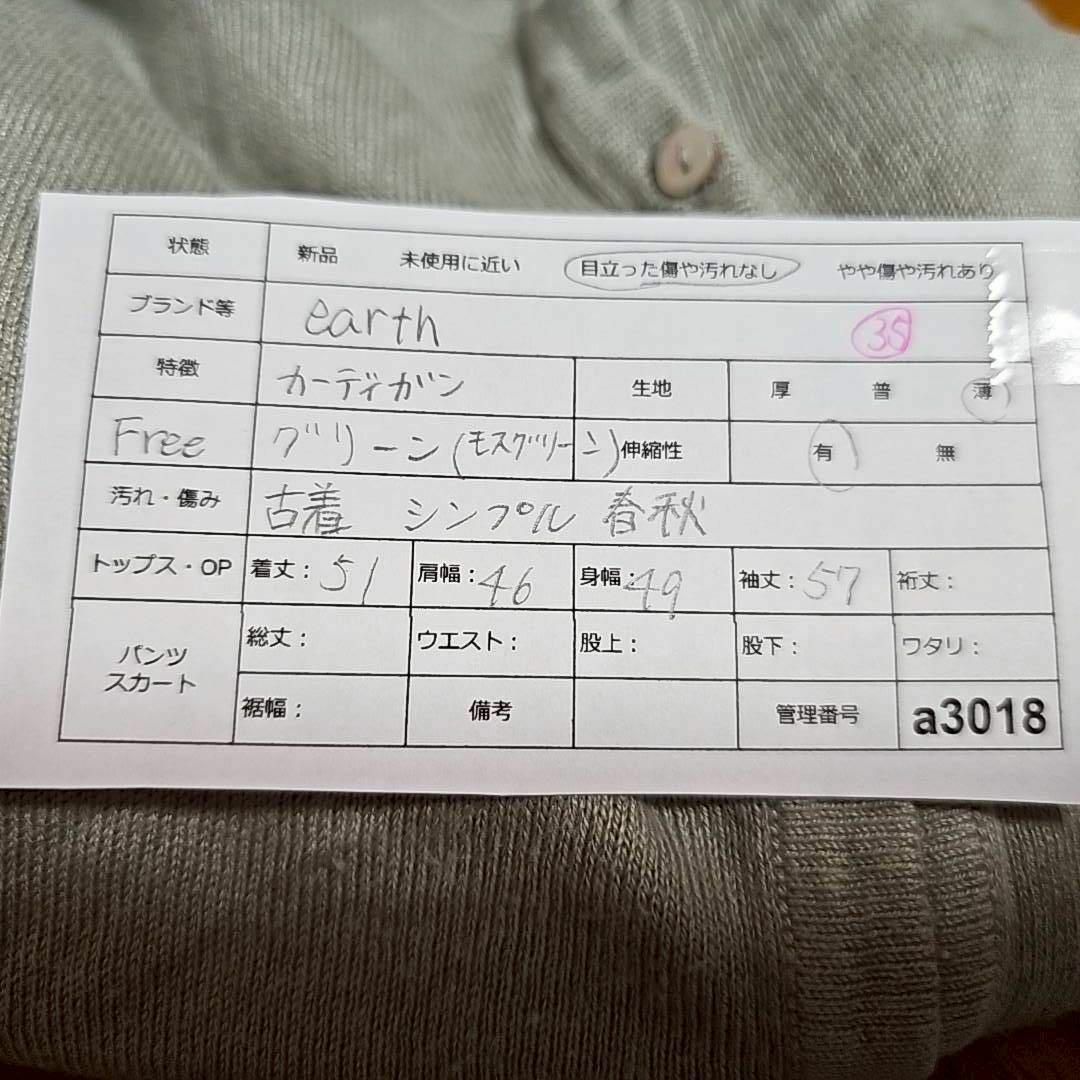 状態 新品 未使用に近い 目立った傷や汚れなし やや傷や汚れあり
ブランド等 earth 35
特徴 カーディガン 生地 厚 普 薄
Free グリーン(モスグリーン) 伸縮性 有 無
汚れ・傷み 古着 シンプル 春秋
トップス・OP 着丈: 51 肩幅: 46 身幅: 49 袖丈: 57 裄丈:
パンツ スカート 総丈: ウエスト: 股上: 股下: ワタリ:
裾幅: 備考 管理番号 a3018